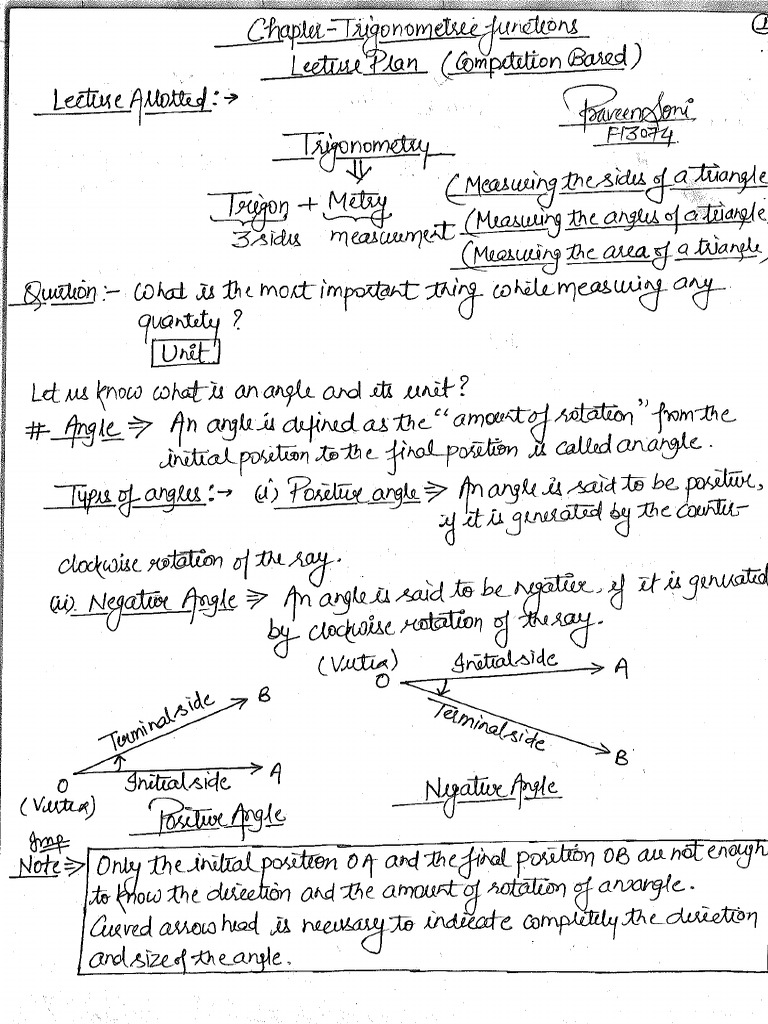 Chapter-Trigonometric functions
Lecture Plan (Competition Based)
Lecture Allotted:→
Praveen Soni
F13074
Trigonometry
⇓
Trigon + Metry
3 sides measurement
(Measuring the sides of a triangle
(Measuring the angles of a triangle
(Measuring the area of a triangle)
Question:- What is the most important thing while measuring any
quantity?
Unit
Let us know what is an angle and its unit?
# Angle ⇒ An angle is defined as the "amount of rotation" from the
initial position to the final position is called an angle.
Types of angles:→ (i) Positive angle ⇒ An angle is said to be positive,
if it is generated by the counter-
clockwise rotation of the ray.
(ii). Negative Angle ⇒ An angle is said to be negative, if it is generated
by clockwise rotation of the ray.
(Vertex)
O Initial side A
Terminal side
B
Negative Angle
B
Terminal side
O Initial side A
(Vertex)
Positive Angle
Imp
Note ⇒ Only the initial position OA and the final position OB are not enough
to know the direction and the amount of rotation of an angle.
Curved arrow head is necessary to indicate completely the direction
and size of the angle.